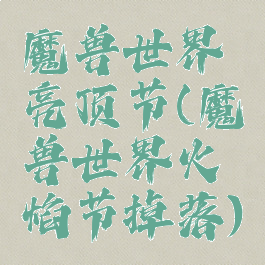 魔兽世界
亮顶节(魔
兽世界火
焰节掉落)